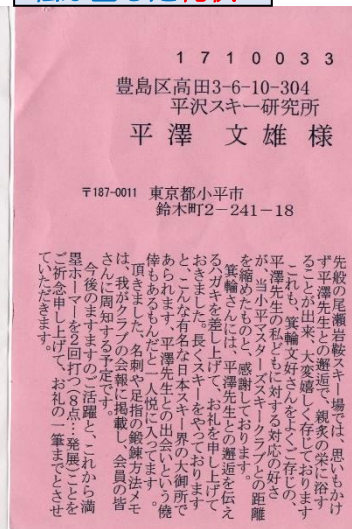 1710033
豊島区高田3-6-10-304
平沢スキー研究所
平澤 文雄 様
〒187-0011 東京都小平市
鈴木町2-241-18
先般の尾瀬岩鞍スキー場では、思いもかけ
ず平澤先生との邂逅で、親炙の学に浴す
ることが出来、大変嬉しく存じております
これも、箕輪文好さんをよくご存じの、
平澤先生の私どもに対する対応の好さ
が、当小平マスターズスキークラブとの距離
を縮めたものと、感謝しております。
箕輪さんには、平澤先生との邂逅を伝え
るハガキを差し上げて、お礼を申し上げて
おきました。長くスキーをやっております
と、こんな有名な日本スキー界の大御所で
あられます、平澤先生との出会いという僥
倖もあるもんだと一人悦に入ってます。
頂きました、名刺や足指の鍛錬方法メモ
は、我がクラブの会報に掲載し、会員の皆
さんに周知する予定です。
今後のますますのご活躍と、これから満
塁ホーマーを2回打つ(8点…発展)ことを
ご祈念申し上げて、お礼の一筆までとさせ
ていただきます。